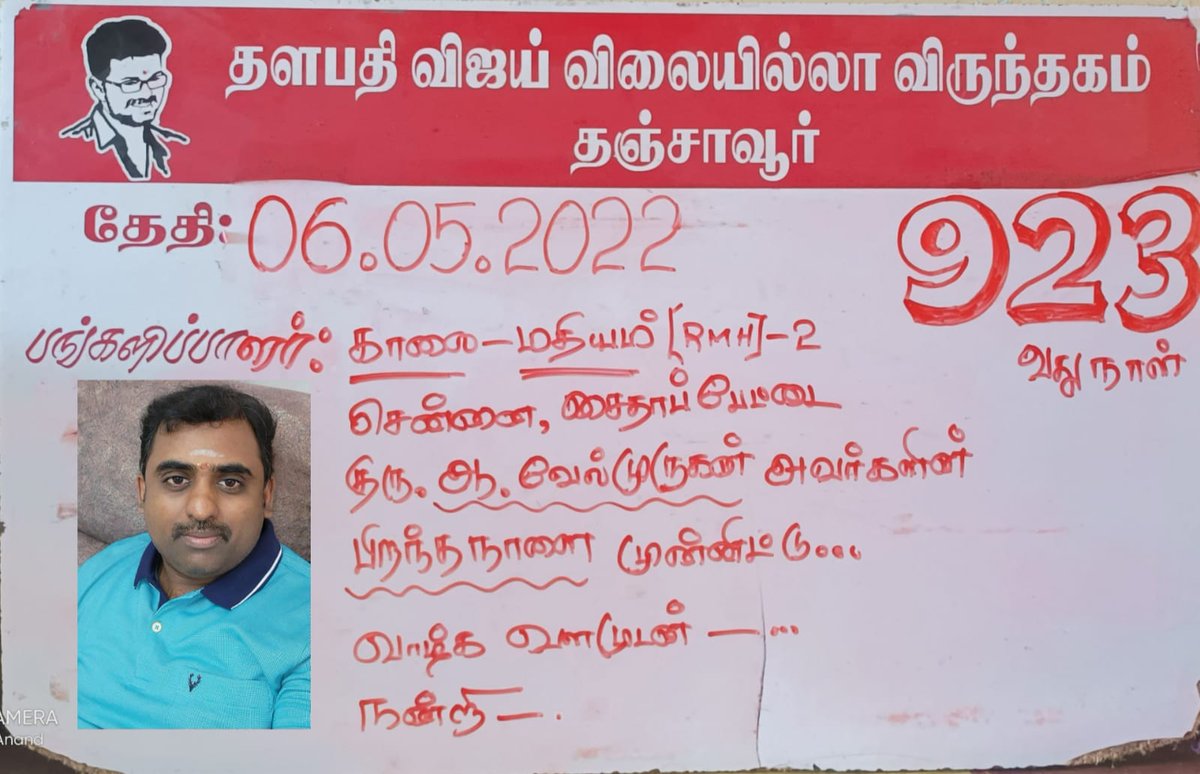 தளபதி விஜய் விலையில்லா விருந்தகம்
தஞ்சாவூர்
தேதி: 06.05.2022
923
வது நாள்
பங்களிப்பாளர்: காலை - மதியம் [RMH] - 2
சென்னை, சைதாப்பேட்டை
திரு. ஆ. வேல்முருகன் அவர்களின்
பிறந்தநாளை முன்னிட்டு....
வாழ்க வளமுடன் — ...
நன்றி — .
AMERA
Anand